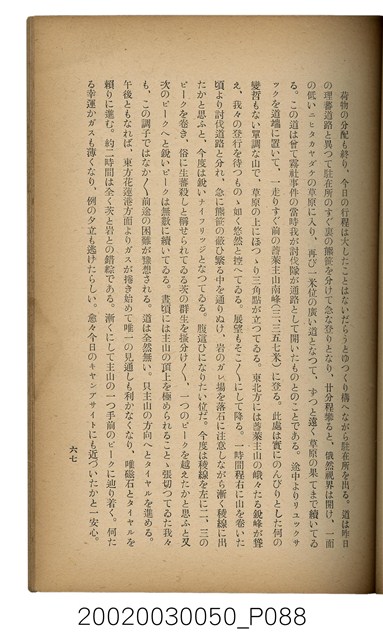 荷物の分配も終り、今日の行程は大したことはないだらうとゆつくり構へながら駐在所を出る。道は昨日
の理蕃道路と異つて駐在所のすぐ裏の熊笹を分けて急な登りとなり、廿分程攀ると、俄然視界は開け、一面
の低いニヒタカヤダケの草原に入り、再び一米位の廣い道となつて、ずつと遠く草原の果てまで續いてゐ
る。この道は曾て霧社事件の當時我が討伐隊が通路として開いたものとのことである。途中よりリユツクサ
ツクを道端に置いて、一走りすぐ前の蕃萊主山南峰(三三五七米)に登る。此處は實にのんびりとした何の
變哲もない單調な山で、草原の上にほつゝり三角點が立つてゐる。東北方には蕃萊主山の峨々たる鋭峰が聳
え、我々の登行を待つものゝ如く悠然と控へてゐる。展望もそこ〳〵にして降る。一時間程右に山を卷いた
頃より討伐道路と分れ、急に熊笹の密び繁る中を通りぬけ、岩のガレ場を落石に注意しながら漸く稜線に出
たかと思ふと、今度は鋭いナイフリツジとなつてゐる。腹這ひになりたい位だ。今度は稜線を左に二、三の
ピークを卷き、俗に生蕃殺しと稱せられてゐる茨の群生を掻分け〳〵、一つのピークを越えたかと思ふと又
次のピークへと鋭いピークは無數に續いてゐる。晝頃には主山の頂上を極められることゝ張切つてゐた我々
も、この調子ではなか〳〵前途の困難が豫想される。道は全然無い。只主山の方向へとタイヤルを進める。
午後ともなれば、東方花蓮港方面よりガスが捲き始めて唯一の見通しも利かなくなり、唯磁石とタイヤルを
賴りに進む。約二時間は全く茨と岩との錯綜である。漸くにして主山の一つ手前のピークに辿り着く。何た
る幸運かガスも薄くなり、例の夕立も逃げたらしい。愈々今日のキヤンプサイトにも近づいたかと一安心。
六七
20020030050_P088